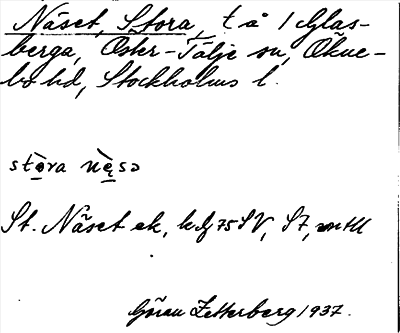 Näset, Stora, t å / Glas-
berga, Öster-Tälje sn, Ökne-
bo hd, Stockholms l.
stòra nę̀sə
St. Näset ek, kbl 75 SV, S7,
Göran Zetterberg 1937.